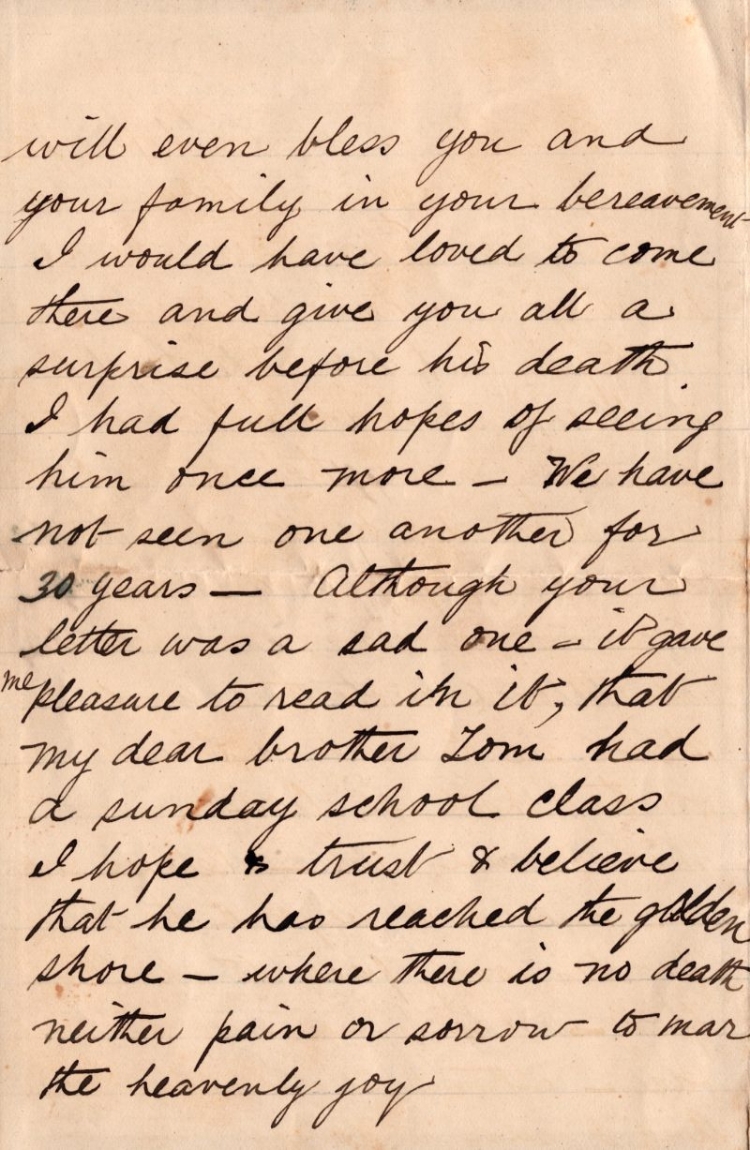 will even bless you and
your family in your bereavement
I would have loved to come
there and give you all a
surprise before his death
I had full hopes of seeing
him once more – We have
not seen one another for
30 years — Although your
letter was a sad one – it gave
me pleasure to read in it, that
my dear brother Tom had
a sunday school class
I hope & trust & believe
that he has reached the golden
shore – where there is no death
neither pain or sorrow to mar
the heavenly joy